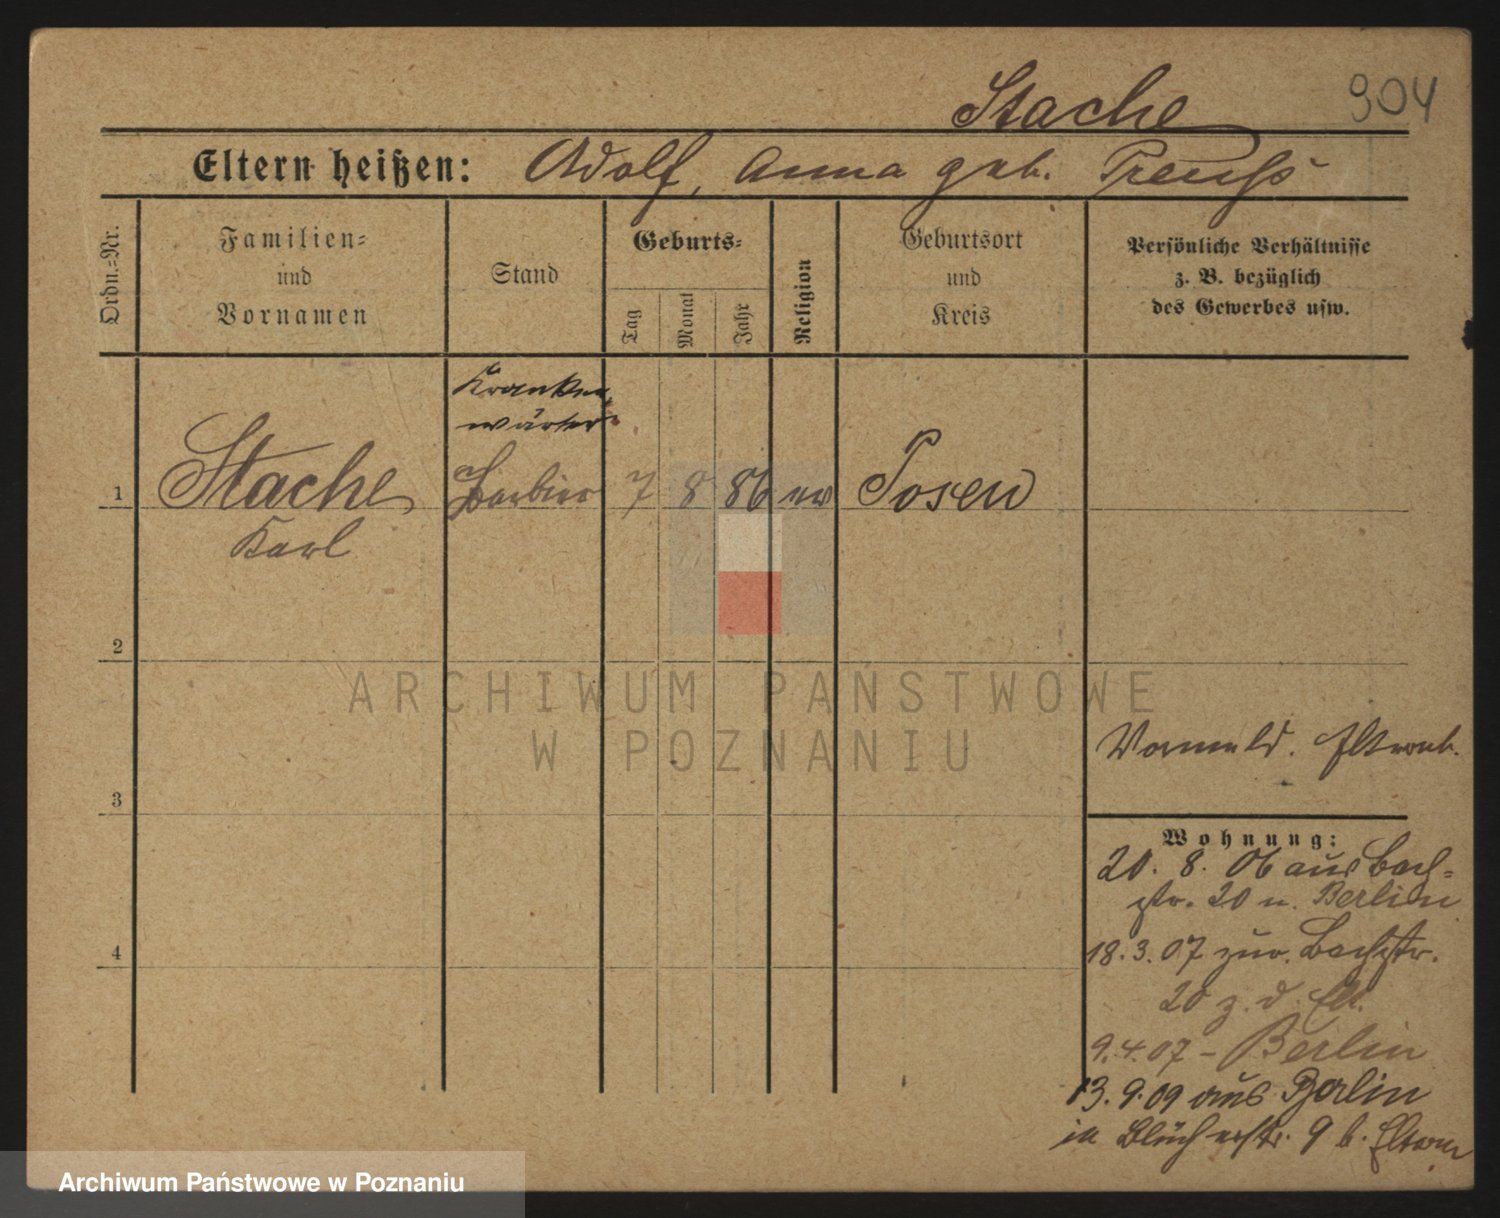 Stache 904
Eltern heißen: Adolf, Anna geb. Preuß
Ordn.-Nr.
Familien- und Vornamen
Stand
Geburts-
Tag
Monat
Jahr
Religion
Geburtsort und Kreis
Persönliche Verhältnisse
z. B. bezüglich
des Gewerbes usw.
Kranken-
wärter
1 Stache Barbier 7 8 86 ev Posen
Karl
2
ARCHIWUM PAŃSTWOWE
W POZNANIU
3
4
Vormeld. Elternb.
Wohnung:
20. 8. 06 aus Bach-
str. 20 n. Berlin
18.3.07 zur. Bachstr.
20 z. d. Elt.
9.4.07 - Berlin
13.9.09 aus Berlin
in Blücherstr. 9 b. Eltern
Archiwum Państwowe w Poznaniu